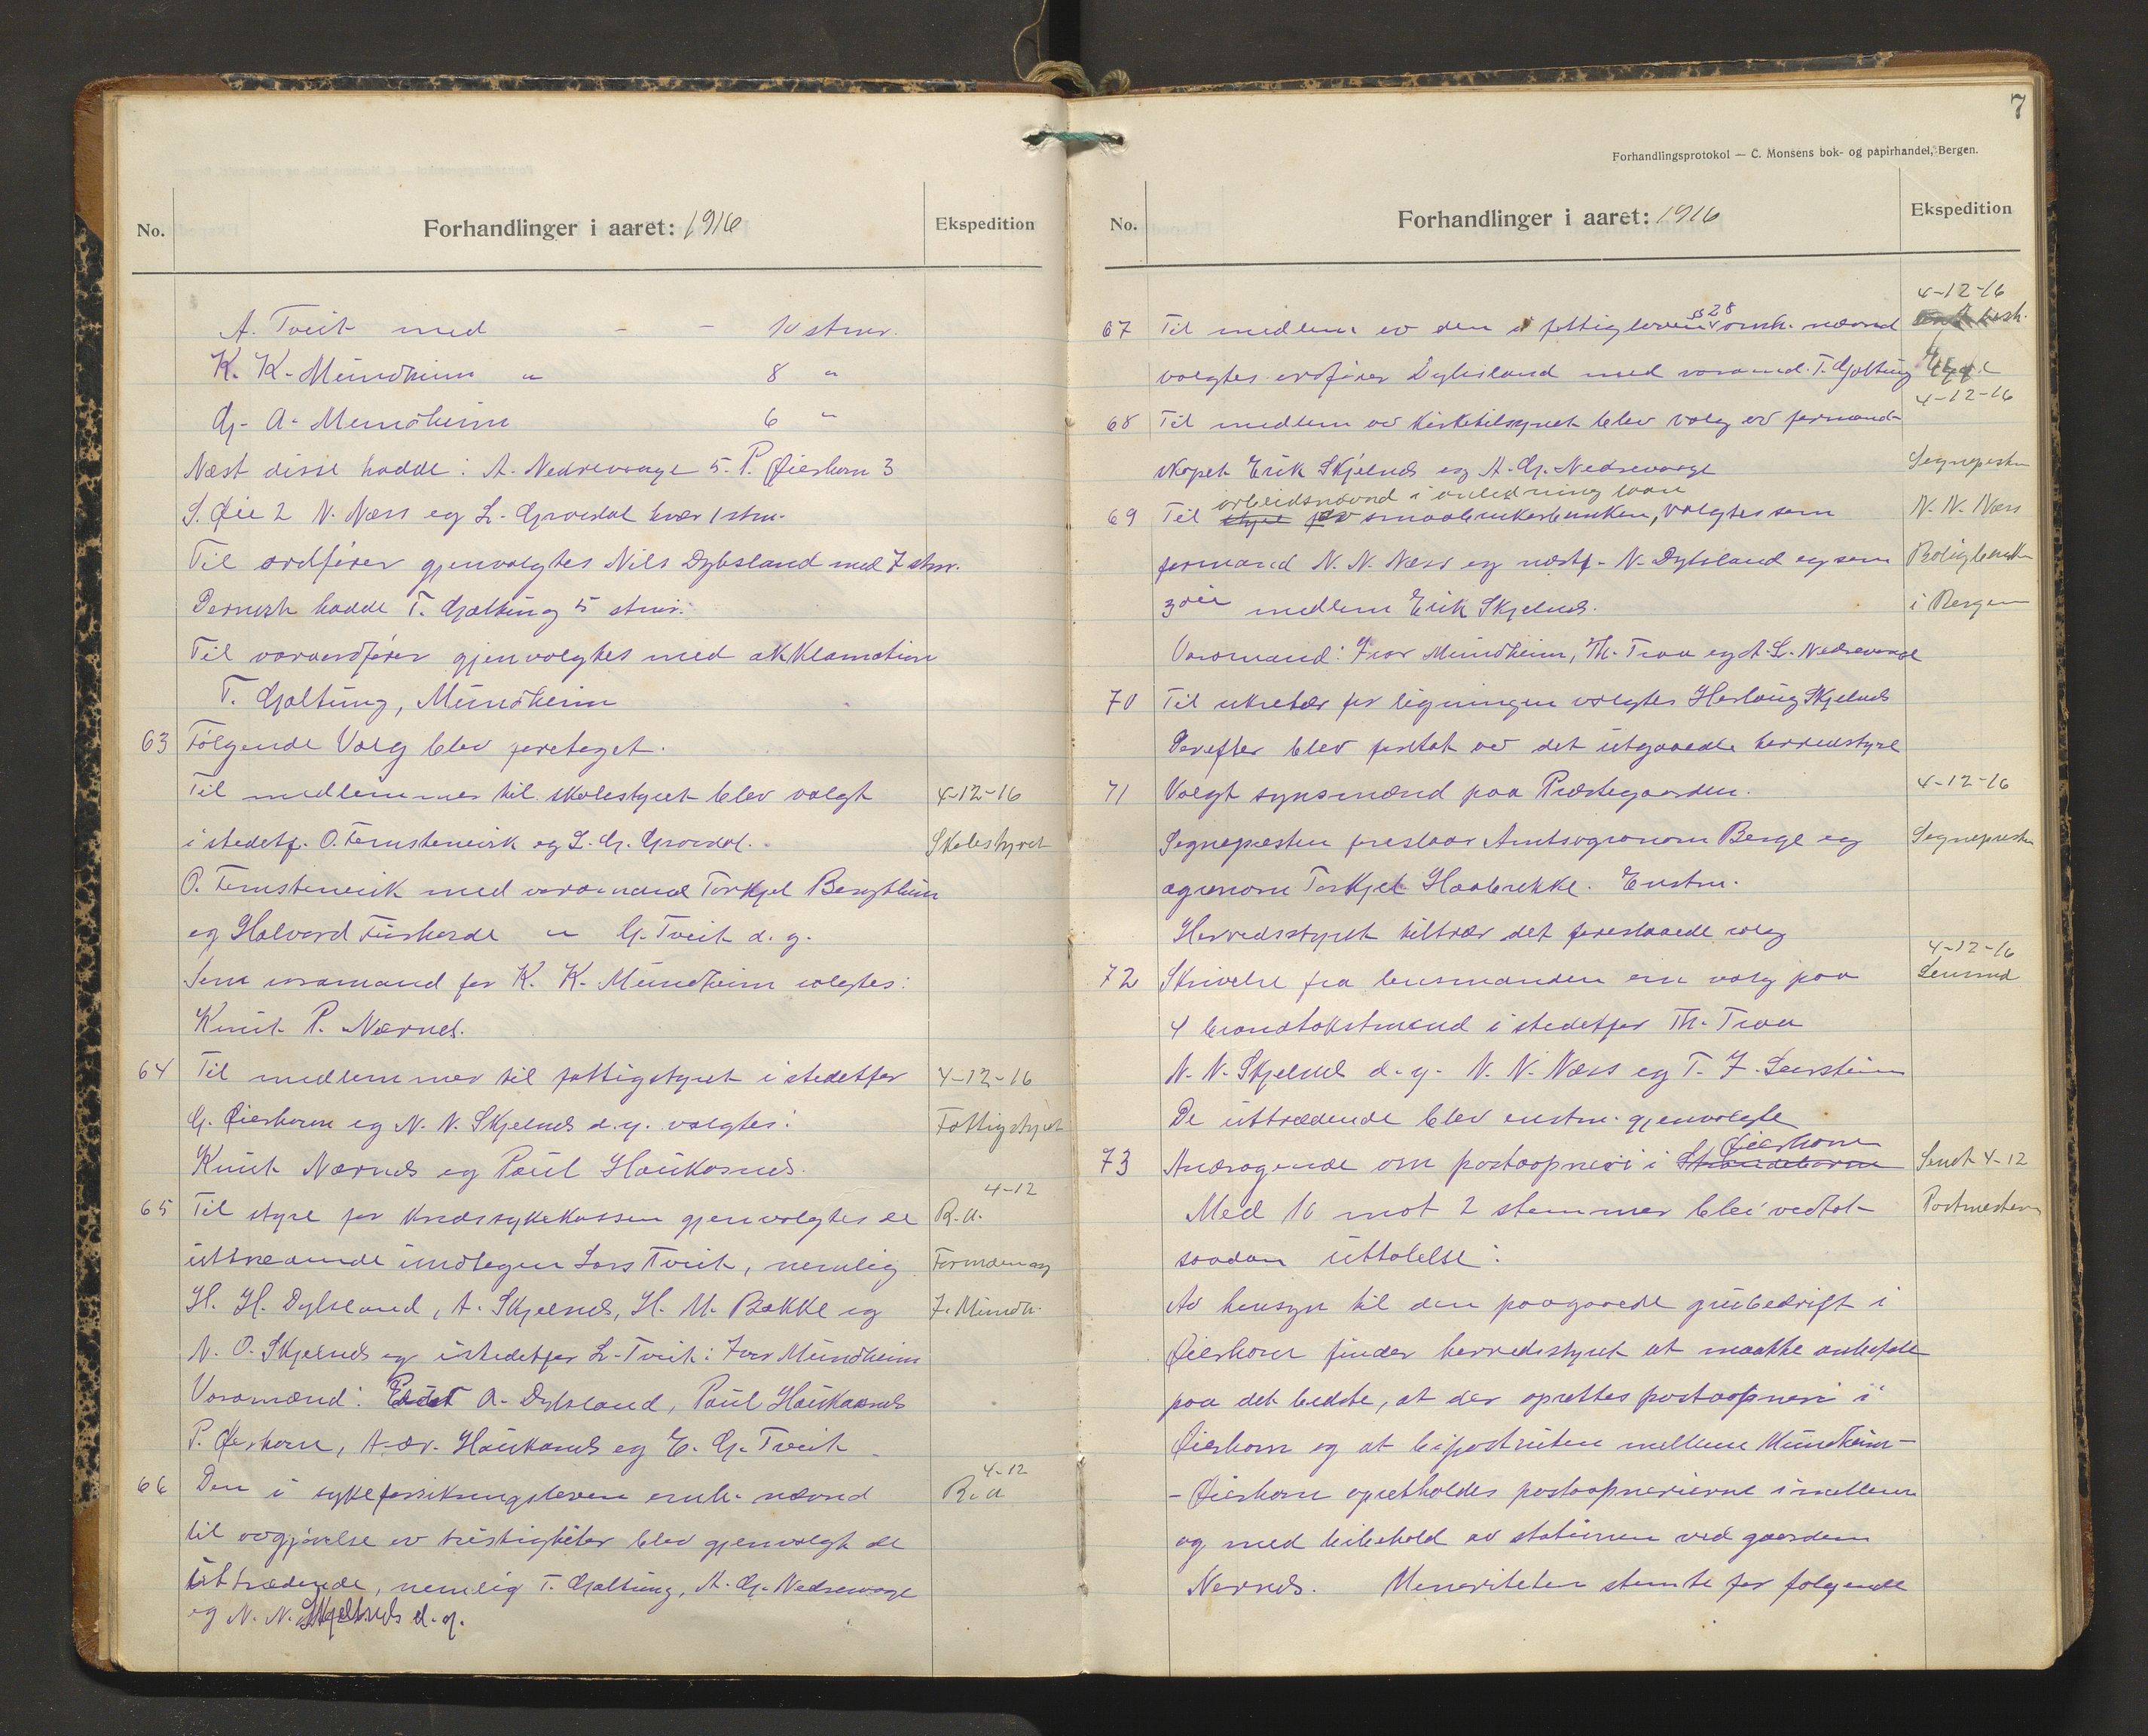 No.
Forhandlinger i aaret: 1916
Ekspedition
A. Tveit med - - 10 stmr.
K. K. Mundheim " 8 "
G. A. Mundheim 6 "
Næst disse hadde: A. Nedrevaage 5. P. Øierhavn 3
S. Øie 2 N. Næss og L. Groesdal hver 1 stm.
Til ordfører gjenvalgtes Nils Dybsland med 7 stmr.
Dernæst hadde T. Galtung 5 stmr.
Til varaordfører gjenvalgtes med akklamation
T. Galtung, Mundheim
63 Følgende Valg blev foretaget.
Til medlemmer til skolestyret blev valgt 4-12-16
i stedetf. O. Ternstenvik og L. G. Groesdal. Skolestyret
O. Ternstenvik med varamand Torkjel Bergthun
og Halvard Fuskeade " G. Tveit d. y.
Som varamand for K. K. Mundheim valgtes:
Knut P. Nærnes.
64 Til medlemmer til fattigstyret i stedetfor 4-12-16
G. Øierhavn og N. N. Skjelnes d. y. valgtes: Fattigstyret
Knut Nærnes og Paul Haukasnes.
4-12
65 Til styre for kredssykekassen gjenvalgtes de R.u.
uttrædende undtagen Lars Tveit, nemlig Formanden og
H. H. Dybsland, A. Skjelnes, H. M. Bakke og I. Mundh.
N. O. Skjelnes og istedetfor L. Tveit: Iver Mundheim
Varamænd: A. Dybsland, Paul Haukaasnes
P. Øierhavn, Haukanes og E. G. Tveit
4-12
66 Den i sykeforsikringsloven omh. nævnd R.u
til avgjørelse av tvistigheter blev gjenvalgt de
uttrædende, nemlig T. Galtung, A. G. Nedrevaage
og N. N. Skjelnes d. y.
7
Forhandlingsprotokol — C. Monsens bok- og papirhandel, Bergen.
No.
Forhandlinger i aaret: 1916
Ekspedition
4-12-16
67 Til medlem av den i fattigloven § 28 omh. nævnd
valgtes ordfører Dybsland med varamd. T. Galtung
4-12-16
68 Til medlem av kirketilsynet blev valg av formand-
skapet Erik Skjelnes og A. G. Nedrevaage Sognepresten
arbeidsnævnd i anledning laan
69 Til styre for av smaabrukerbanken, valgtes som N. N. Næss
formand N. N. Næss og næstf. N. Dybsland og som Boligbanken
3die medlem Erik Skjelnes. i Bergen
Varamænd: Ivar Mundheim, Th. Traa og A. L. Nedrevaage
70 Til sekretær for ligningen valgtes Herlaug Skjelnes
Derefter blev foretat av det utgaaede herredstyre
71 Valgt synsmænd paa Præstegaarden. 4-12-16
Sognepresten foreslaar Amtsagronom Berge og Sognepresten
agronom Torkjel Haabrekke. Enstm.
Herredsstyret tiltrær det foreslaaede valg
4-12-16
72 Skrivelse fra lensmanden om valg paa Lensmd
4 brandtakstmænd i stedetfor Th. Traa
N. N. Skjelnes d. y. N. N. Næss og T. J.
De uttrædende blev enstm. gjenvalgte
Øierhavn
73 Andragende om postaapneri i Strandebarm Sendt 4-12
Med 10 mot 2 stemmer blei vedtat Postmesteren
saadan uttalelse:
Av hensyn til den paagaaede grubedrift i
Øierhavn finder herredsstyret at maatte anbefale
paa det bedste, at der oprettes postaapneri i
Øierhavn og at bipostruten mellem Mundheim-
- Øierhavn opretholdes postaapnerierne imellem
og med bibehold av stationen ved gaarden
Nernes. Menoriteten stemte for følgende